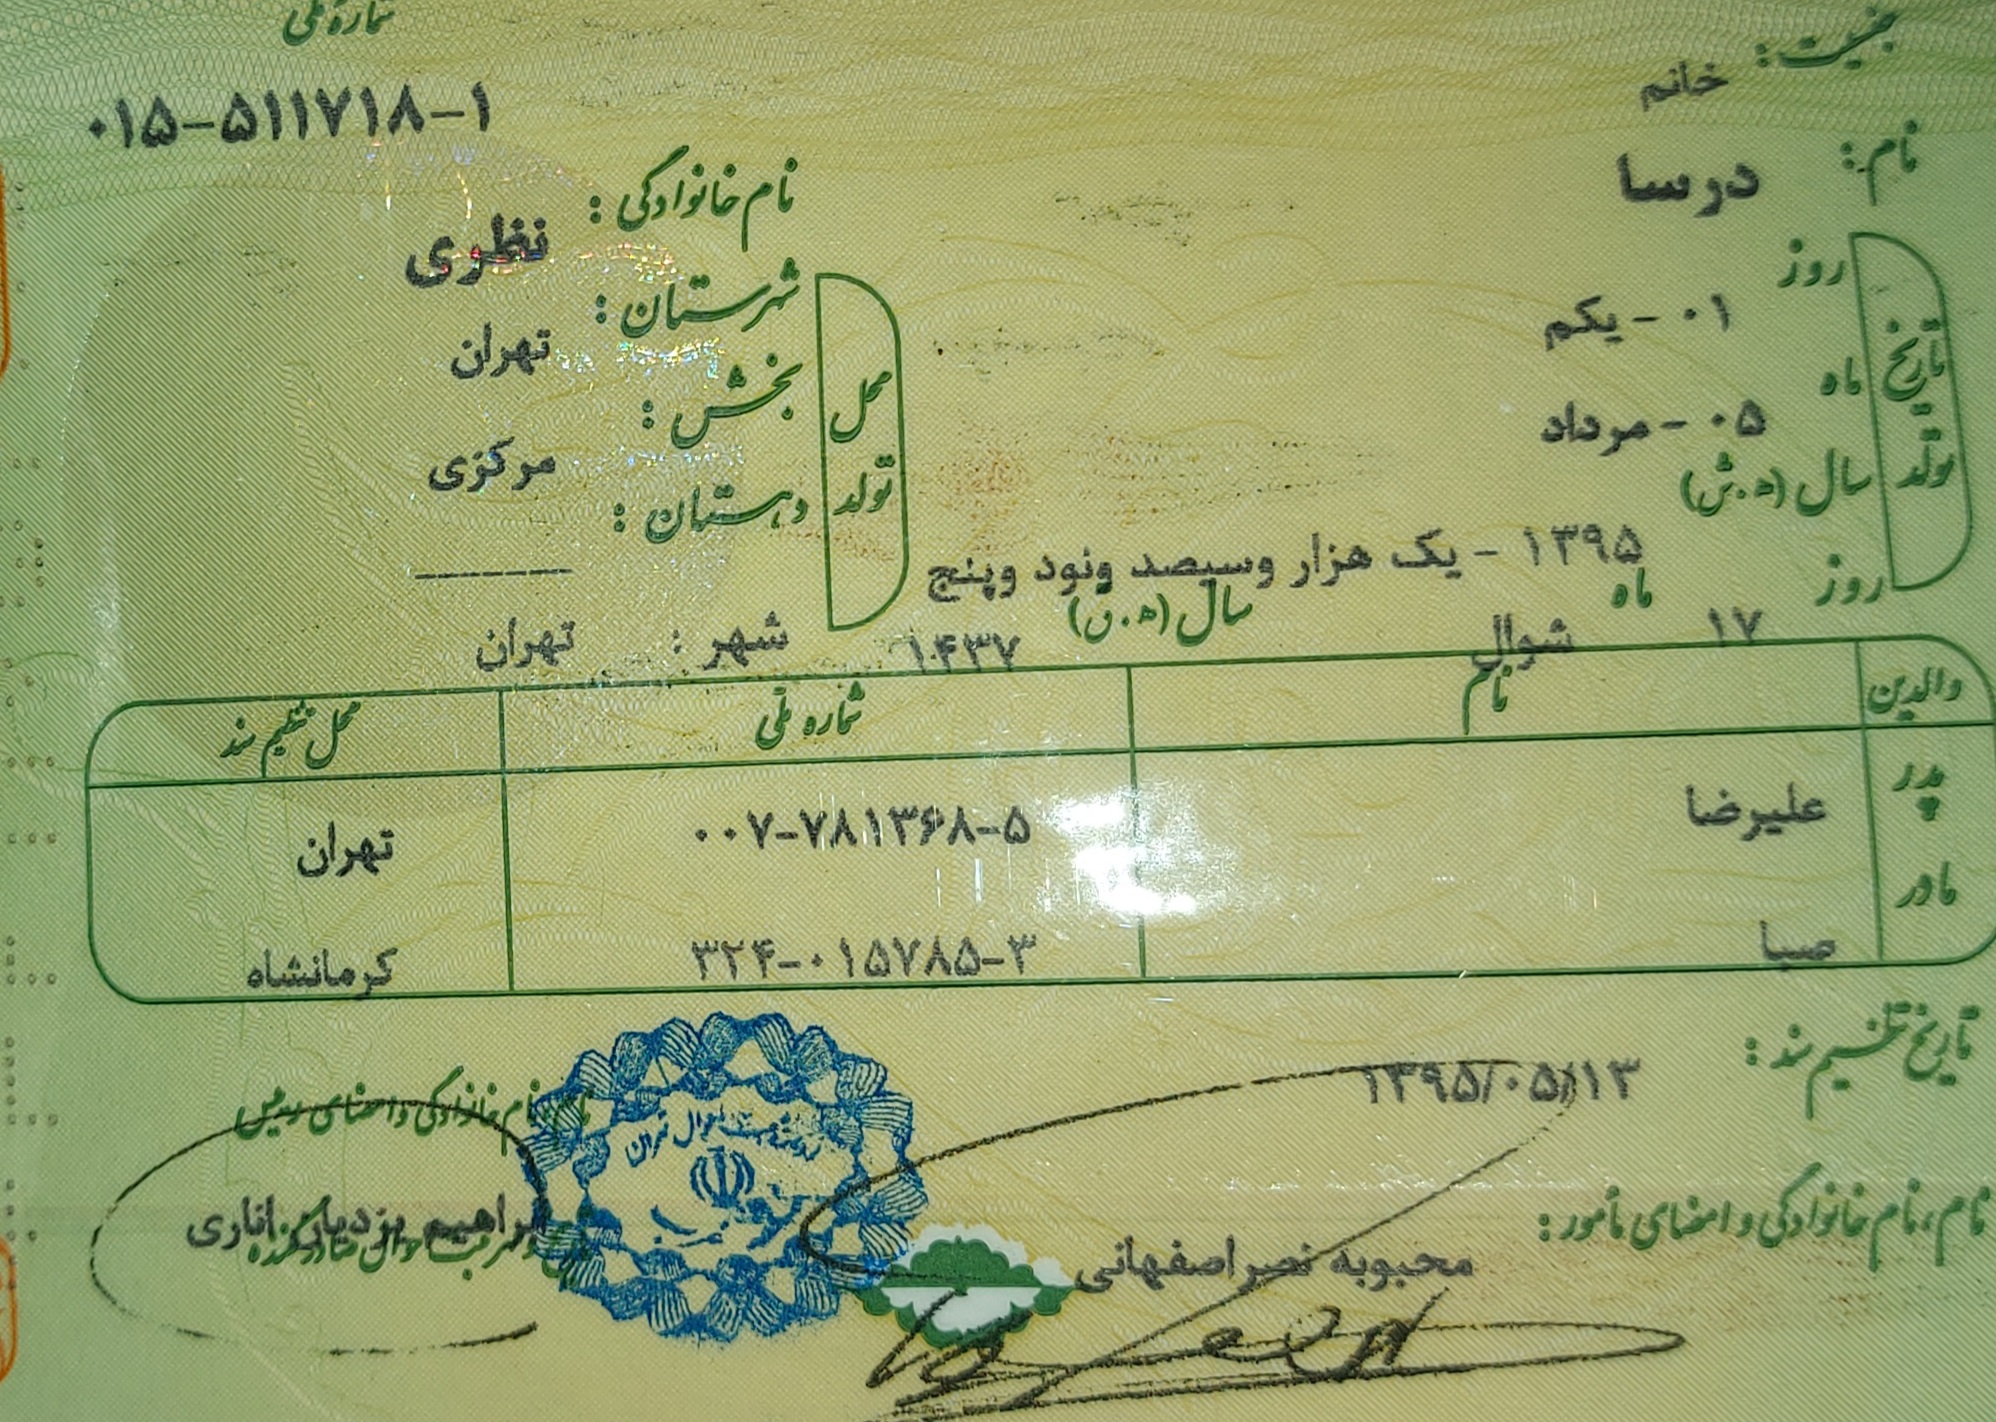 شماره ملی
جنسیت: خانم
۰۱۵-۵۱۱۷۱۸-۱
نام: درسا
نام خانوادگی: نظری
تاریخ تولد
روز ۰۱ - یکم
ماه ۰۵ - مرداد
سال (ه.ش) ۱۳۹۵ - یک هزار وسیصد ونود وپنج
روز ۱۷ ماه شوال سال (ه.ق) ۱۴۳۷
محل تولد
شهرستان: تهران
بخش: مرکزی
دهستان: --------
شهر: تهران
والدین نام شماره ملی محل تنظیم سند
پدر علیرضا ۰۰۷-۷۸۱۳۶۸-۵ تهران
مادر صبا ۳۲۴-۰۱۵۷۸۵-۳ کرمانشاه
تاریخ تنظیم سند: ۱۳۹۵/۰۵/۱۳
نام، نام خانوادگی و امضای مأمور:
محبوبه نصراصفهانی
نام خانوادگی و امضای
یزدیان اناری